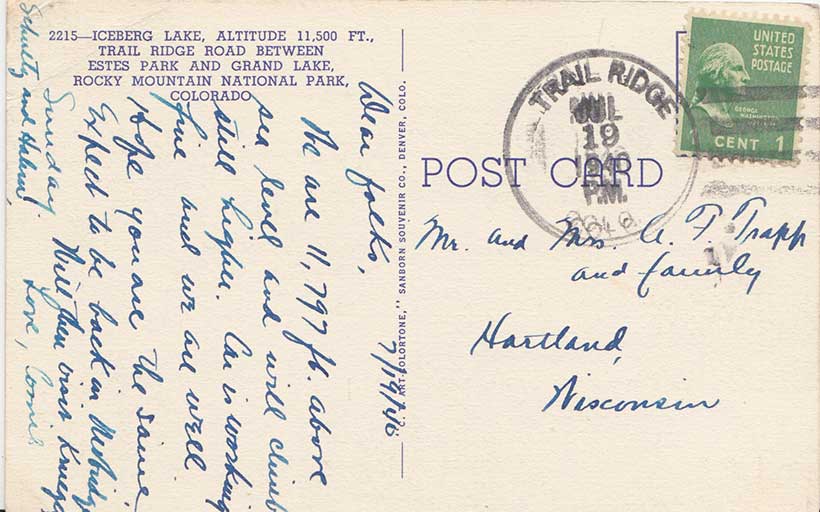 2215—ICEBERG LAKE, ALTITUDE 11,500 FT.,
TRAIL RIDGE ROAD BETWEEN
ESTES PARK AND GRAND LAKE,
ROCKY MOUNTAIN NATIONAL PARK,
COLORADO
7/19/46
Dear folks,
We are 11,797 ft. above
sea level and will climb
still higher. Car is working
fine and we are well.
Hope you are the same
Expect to be back in
Sunday. Will then visit
Schultz and
Love,
"C. T. ART-COLORTONE," SANBORN SOUVENIR CO., DENVER, COLO.
POST CARD
TRAIL RIDGE
JUL
19
P.M.
COLO.
UNITED
STATES
POSTAGE
GEORGE
WASHINGTON
1 CENT 1
Mr. and Mrs. A. F. Trapp
and family
Hartland,
Wisconsin